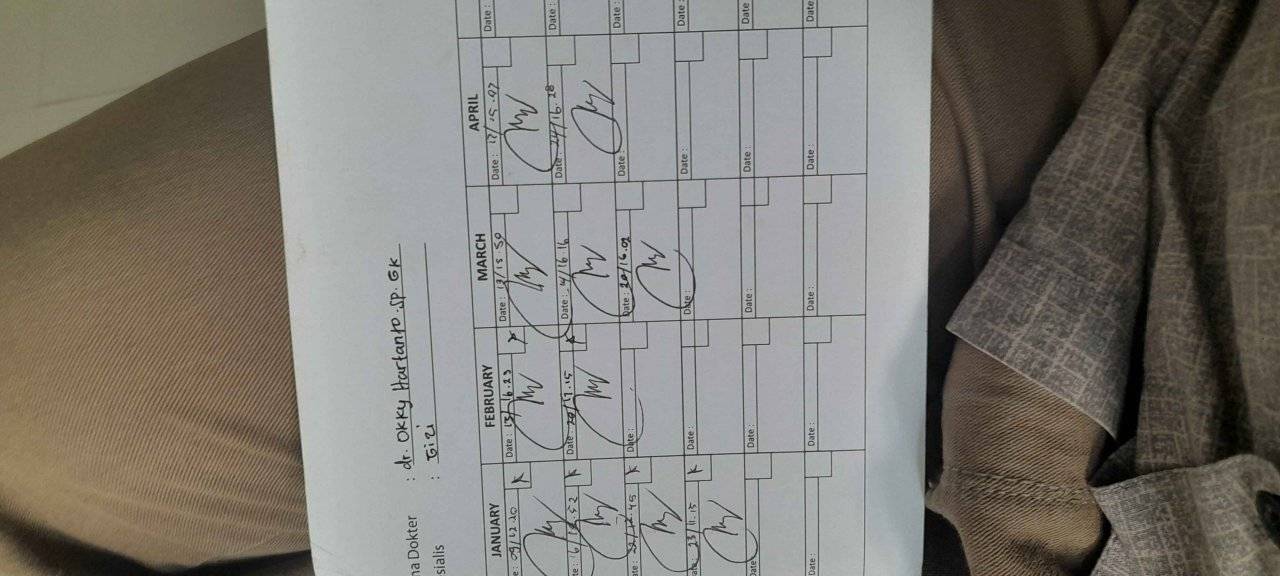 na Dokter : dr. Okky Hartanto.Sp.GK
sialis : Gizi
JANUARY FEBRUARY MARCH APRIL
Date : 13/16.23 Date : 13/15.50 Date : 17/15.07 Date :
Date : 20/17.15 Date : 4/16.16 Date : 24/16.28 Date :
Date : Date : 20/16.02 Date : Date :
ate : 23/11.15 Date : Date : Date : Date :
Date : Date : Date : Date : Date :
Date : Date : Date : Date : Date :